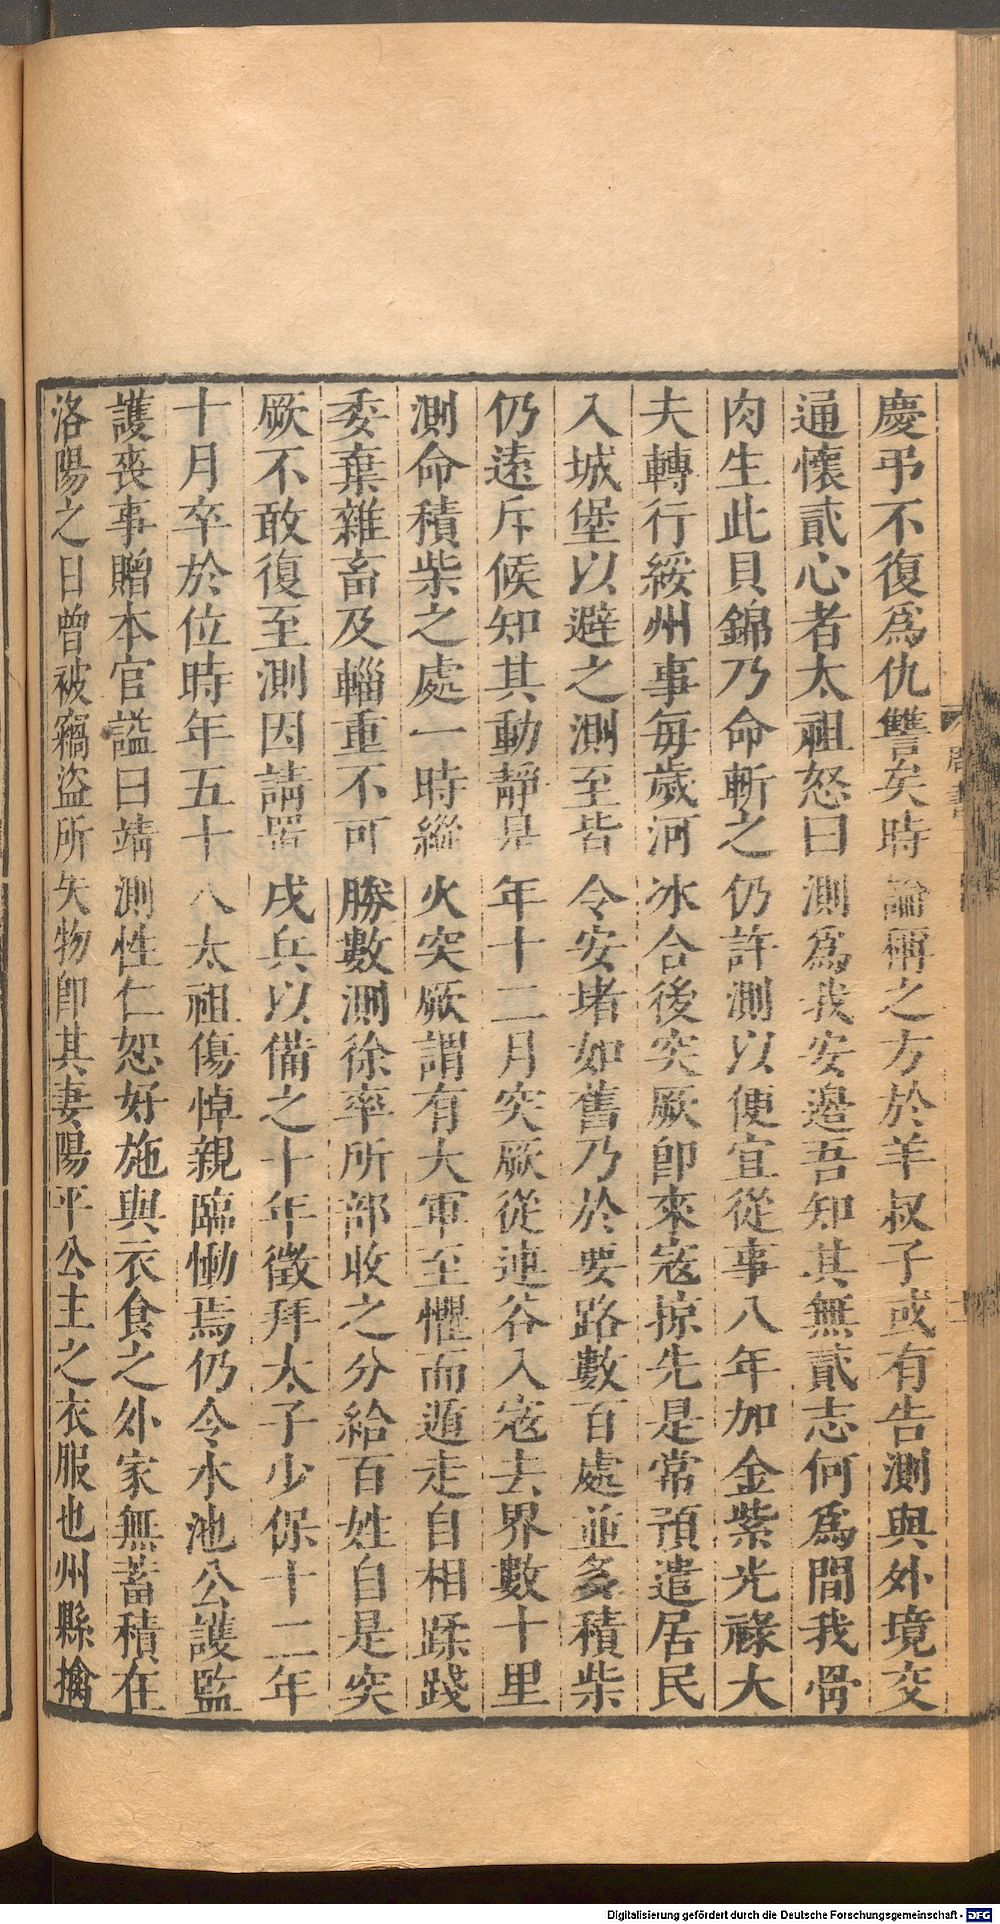 慶弔不復爲仇讐矣時論稱之方於羊叔子或有告測與外境交
通懷貳心者太祖怒曰測爲我安邊吾知其無貳志何爲間我骨
肉生此貝錦乃命斬之仍許測以便宜從事八年加金紫光祿大
夫轉行綏州事每歲河冰合後突厥卽來寇掠先是常預遣居民
入城堡以避之測至皆令安堵如舊乃於要路數百處並多積柴
仍遠斥候知其動靜是年十二月突厥從連谷入寇去界數十里
測命積柴之處一時縱火突厥謂有大軍至懼而遁走自相蹂踐
委棄雜畜及輜重不可勝數測徐率所部收之分給百姓自是突
厥不敢復至測因請置戍兵以備之十年徵拜太子少保十二年
十月卒於位時年五十八太祖傷悼親臨慟焉仍令水池公護監
護喪事贈本官謚曰靖測性仁恕好施與衣食之外家無蓄積在
洛陽之日曾被竊盜所失物卽其妻陽平公主之衣服也州縣擒
Digitalisierung gefördert durch die Deutsche Forschungsgemeinschaft - DFG